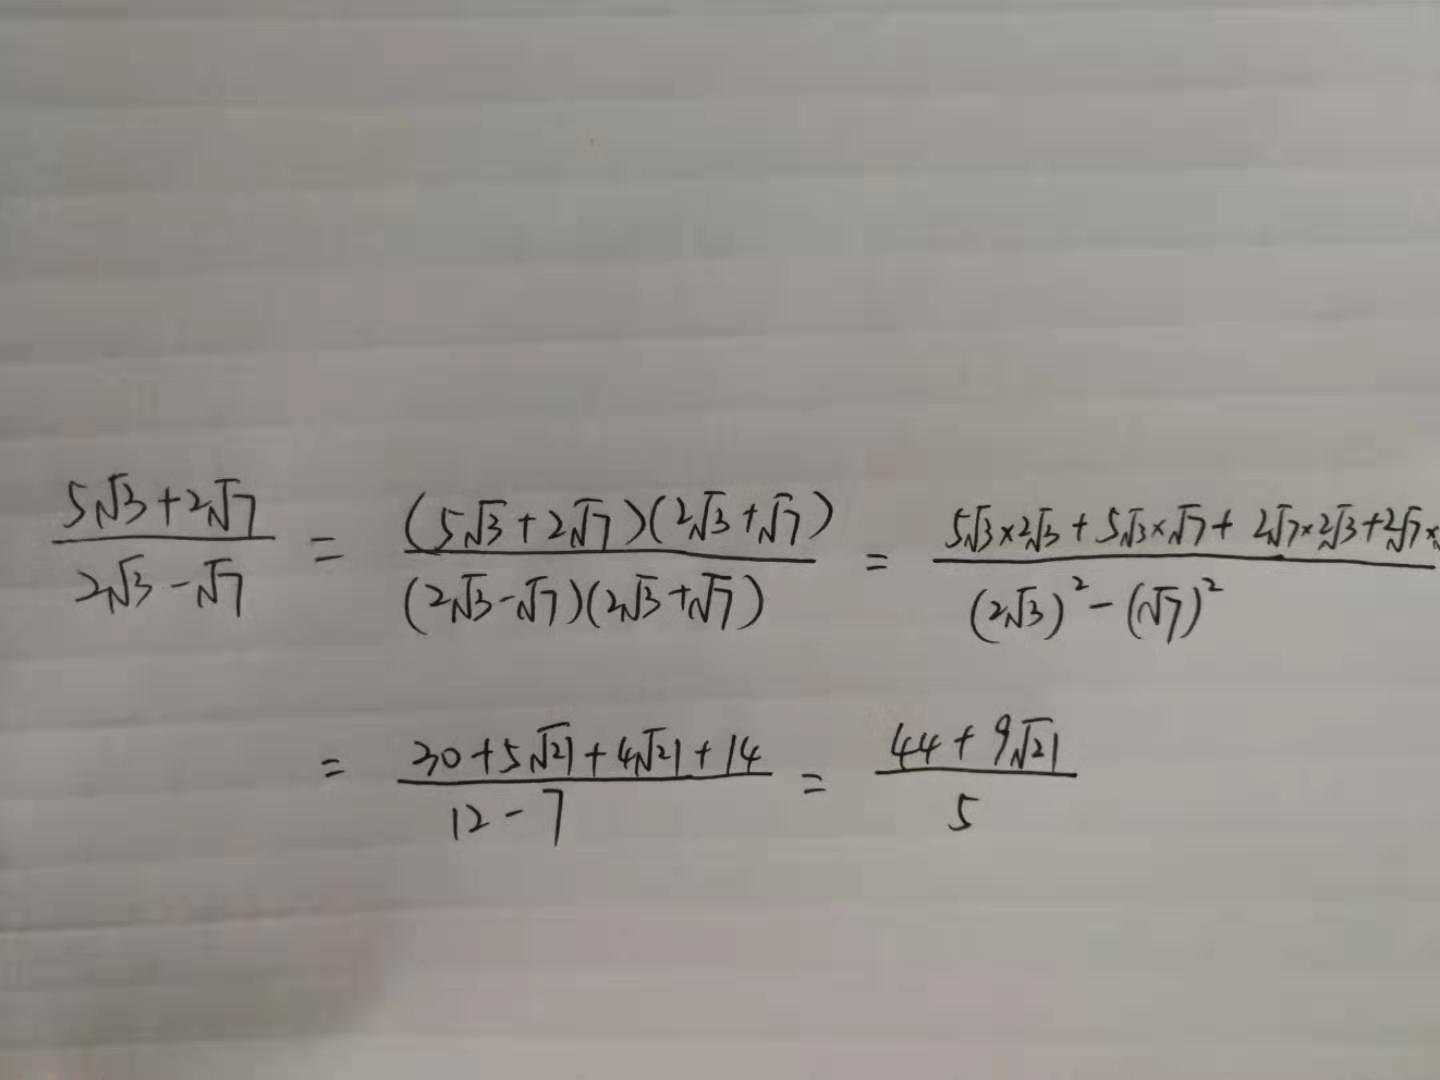 (5√3+2√7)/(2√3-√7) = ((5√3+2√7)(2√3+√7))/((2√3-√7)(2√3+√7)) = (5√3×2√3+5√3×√7+2√7×2√3+2√7×)/((2√3)²-(√7)²)
= (30+5√21+4√21+14)/(12-7) = (44+9√21)/5